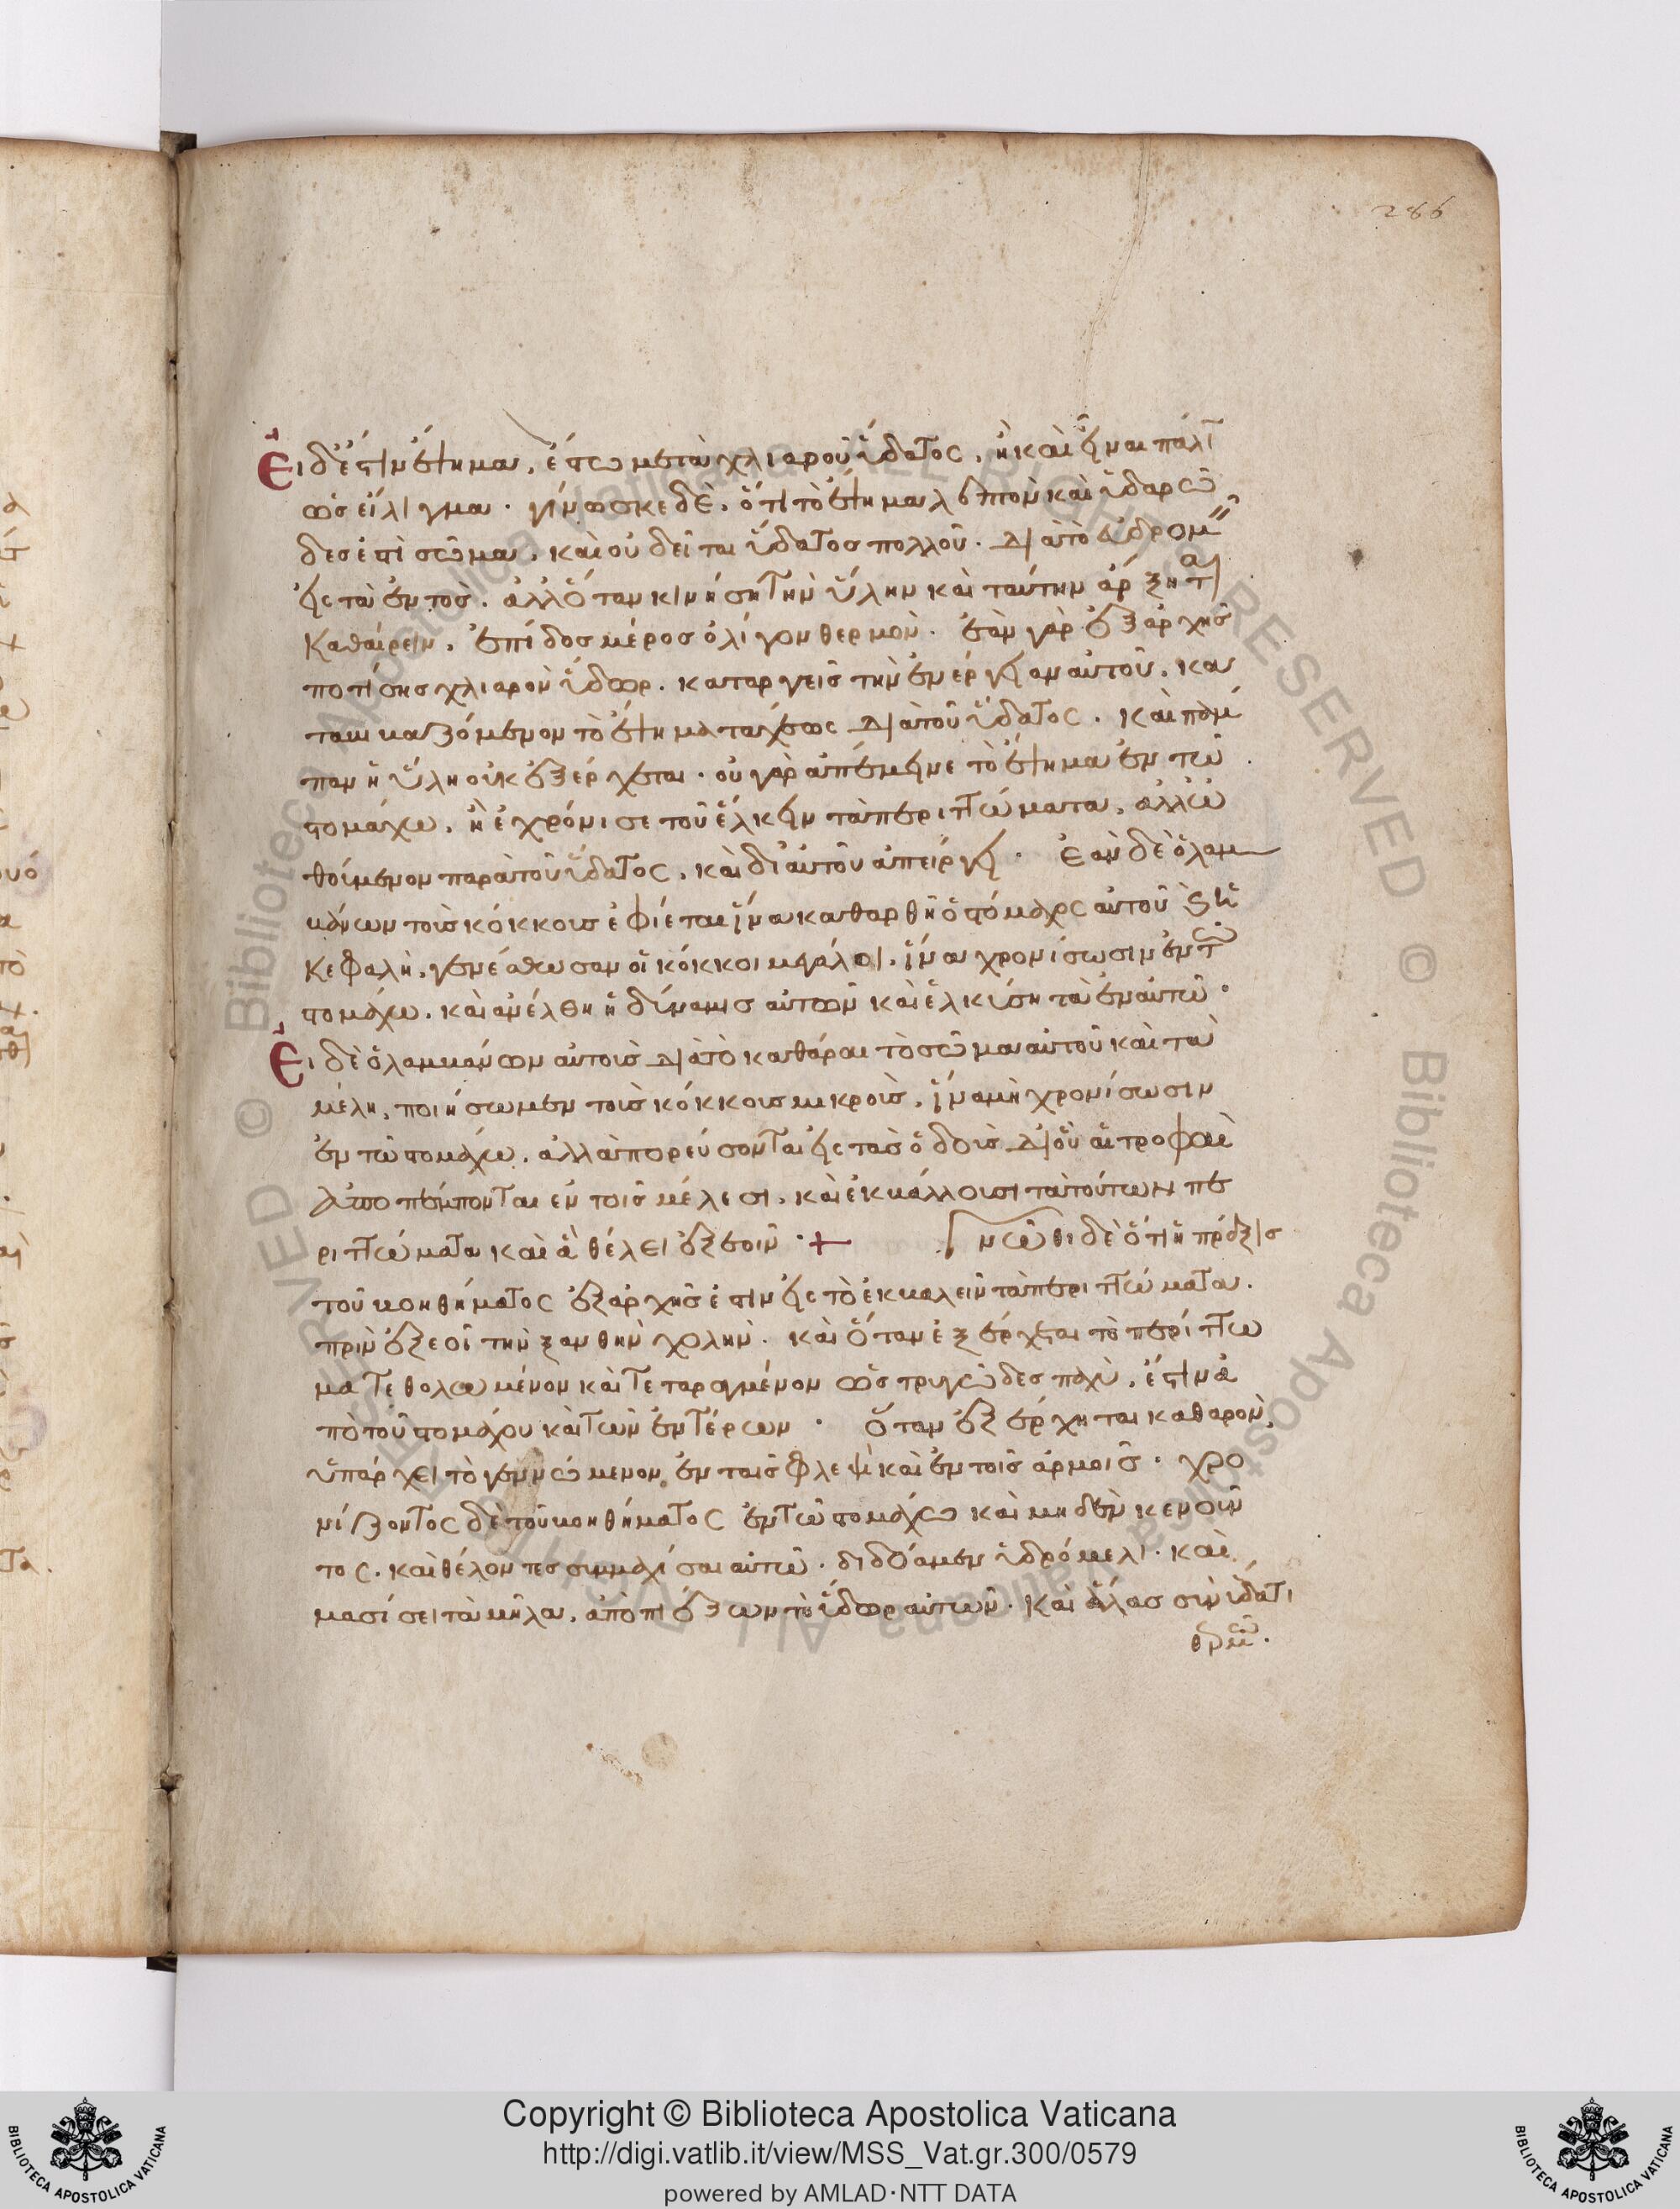 286
Εἰ δέ ἐστιν ἕψημα, ἔστω μετὰ χλιαροῦ ὕδατος, ἢ καὶ εἶναι πάλιν
ὡς ἔκλιγμα. γίνωσκε δὲ, ὅτι τὸ ἕψημα λεπτὸν καὶ ὑδαρῶ
δες ἐστὶ σῶμα, καὶ οὐ δεῖται ὕδατος πολλοῦ. διὰ τὸ
εἰς τὰ ἐντός. ἀλλ' ὅταν κινήση τὴν ὕλην καὶ ταύτην ἄρξηται
καθαίρειν, ἐπίδος μέρος ὀλίγον θερμὸν. ἐὰν γὰρ ἐξ ἀρχῆς
ποτίσης χλιαρὸν ὕδωρ, καταργεῖς τὴν ἐνέργειαν αὐτοῦ. κα
ταβιβαζόμενον τὸ ἕψημα ταχέως διὰ τοῦ ὕδατος. καὶ
παν ἡ ὕλη οὐκ ἐξέρχεται. οὐ γὰρ ἀπέμεινε τὸ ἕψημα ἐν τῶ
στομάχω, ἢ ἐχρόνισε τοῦ ἕλκειν τὰ περιττώματα, ἀλλ' ὠ
θούμενον παρὰ τοῦ ὕδατος, καὶ δι' αὐτοῦ ἀπείργει. ἐὰν δὲ ὁ λαμ
βάνων τοὺς κόκκους ἐφίεται ἵνα καθαρθῆ ὁ στόμαχος αὐτοῦ καὶ ἡ
κεφαλὴ, γενέσθωσαν οἱ κόκκοι μεγάλοι, ἵνα χρονίσωσιν ἐν τῶ
στομάχω, καὶ ἀνέλθη ἡ δύναμις αὐτῶν καὶ ἑλκύση τὰ ἐν αὐτῶ.
Εἰ δὲ ὁ λαμβάνων αὐτοὺς διὰ τὸ καθάραι τὸ σῶμα αὐτοῦ καὶ τὰ
μέλη, ποιήσωμεν τοὺς κόκκους μικροὺς, ἵνα μὴ χρονίσωσιν
ἐν τῶ στομάχω, ἀλλὰ πορεύσονται εἰς τὰς ὁδοὺς δι' οὗ αἱ τροφαὶ
ἀποπέμπονται ἐν τοῖς μέλεσι, καὶ ἐκβάλλουσι τὰ τούτων πε
ριττώματα καὶ ἃ θέλει ἐξεοῖν. + Γνῶθι δὲ ὅτι ἡ πρᾶξις
τοῦ βοηθήματος ἐξ ἀρχῆς ἐστιν εἰς τὸ ἐκβαλεῖν τὰ περιττώματα.
πρὶν ἐξεοῖ τὴν ξανθὴν χολὴν. καὶ ὅταν ἐξέρχεται τὸ περίττω
μα τεθολωμένον καὶ τεταραγμένον ὡς τρυγῶδες παχὺ, ἔστιν ἀ
πὸ τοῦ στομάχου καὶ τῶν ἐντέρων. ὅταν ἐξέρχηται καθαρὸν,
ὑπάρχει τὸ γεννώμενον ἐν ταῖς φλεψὶ καὶ ἐν τοῖς ἁρμοῖς. χρο
νίζοντος δὲ τοῦ βοηθήματος ἐν τῶ στομάχω καὶ μηδὲν κενοῦν
τος. καὶ θέλοντες συμμαχίσαι αὐτῶ, διδόαμεν ὑδρόμελι. καὶ
μασίσει τὰ μῆλα, ἀποπιέζων τὸ ὕδωρ αὐτῶν. καὶ ἅλας σὺν ὕδατι
θερμῶ.
Copyright © Biblioteca Apostolica Vaticana
http://digi.vatlib.it/view/MSS_Vat.gr.300/0579
powered by AMLAD·NTT DATA